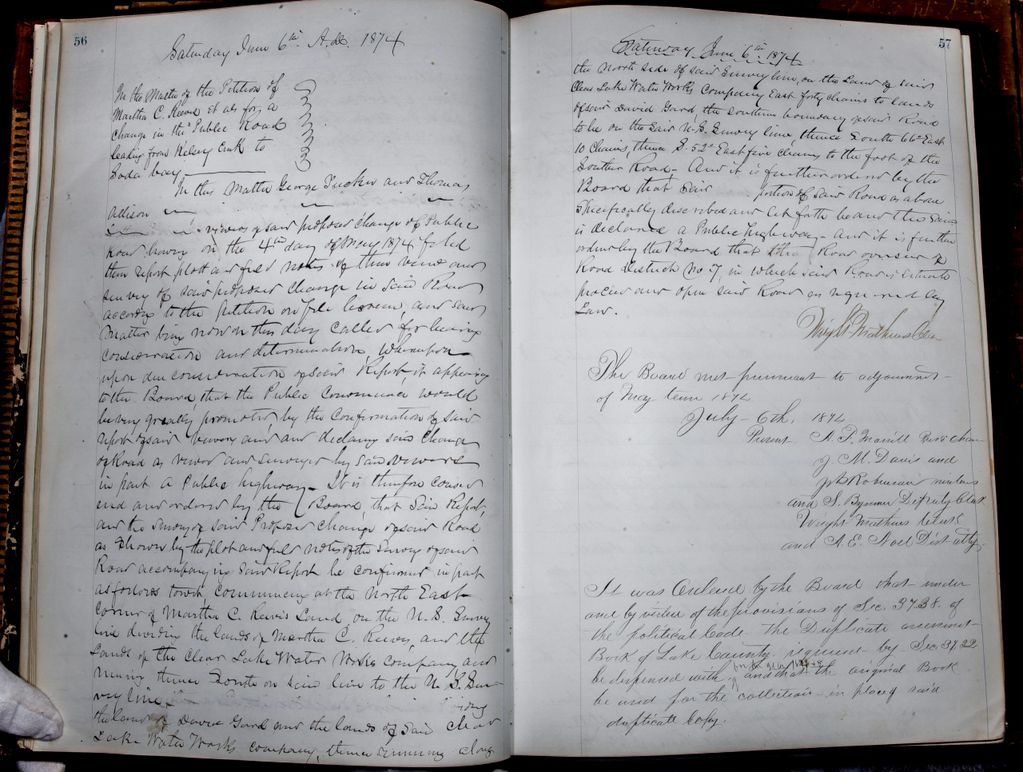 56
Saturday June 6th A.D. 1874
In the Matter of the Petition of
Martha C. Reeves et als for a
change in the Public Road
leading from Kelsey Creek to
Soda bay
In this Matter George Tucker and Thomas
Allison
viewers of said proposed change of Public
Road having on the 4th day of May 1874 filed
their report plott and field notes of their view and
survey of said proposed change in said Road
according to the petition on file herein, and said
Matter being now on this day called for hearing
consideration and determination, Whereupon
upon due consideration of said Report, it appearing
to the Board, that the Public Convenience would
be very greatly promoted, by the Confirmation of said
report of said viewers and declaring said Change
of Road as viewed and surveyed by said viewers
in part a Public highway. It is therefore
and ordered by the Board that said Report,
and the survey of said Proposed change of said Road
as shown by the plot and field notes of the Survey of said
Road accompanying said Report be confirmed in part
as follows towit, Commencing at the North East
corner of Martha C. Reeves Land, on the U.S. Survey
line dividing the lands of Martha C. Reeves, and the
Lands of the Clear Lake Water Works Company and
running thence South on said line to the U.S. Sur-
vey line
the land of David Gard and the lands of said Clear
Lake Water Works company, thence running along
57
Saturday June 6th 1874
the North side of said Survey line, on the Land of said
Clear Lake Water Works Company East forty chains to lands
of said David Gard, the Southern boundary of said Road
to be on the said U.S. Survey line, thence South 66° East
10 Chains, thence S. 52° East five chains to the foot of the
Road. And it is further ordered by the
Board that said portion of said Road as above
Specifically described and set forth be and the same
is declared a Public highway. And it is further
ordered by the Board that the Road overseer of
Road District No 7, in which said Road is situate
procure and open said Road as required by
Law.
The Board met pursuant to adjournment
of May term 1874
July 6th, 1874
Present
J. M. Davis and
and S. Bynum Deputy Clerk
Wright Mathews Clerk
and A. E. Noel Dist Atty
It was Ordered by the Board that under
and by virtue of the provisions of Sec. 3738 of
the political Code. The Duplicate assessment
Book of Lake County required by Sec. 3722
be dispensed with and that the original Book
be used for the collection in place of said
duplicate Copy.